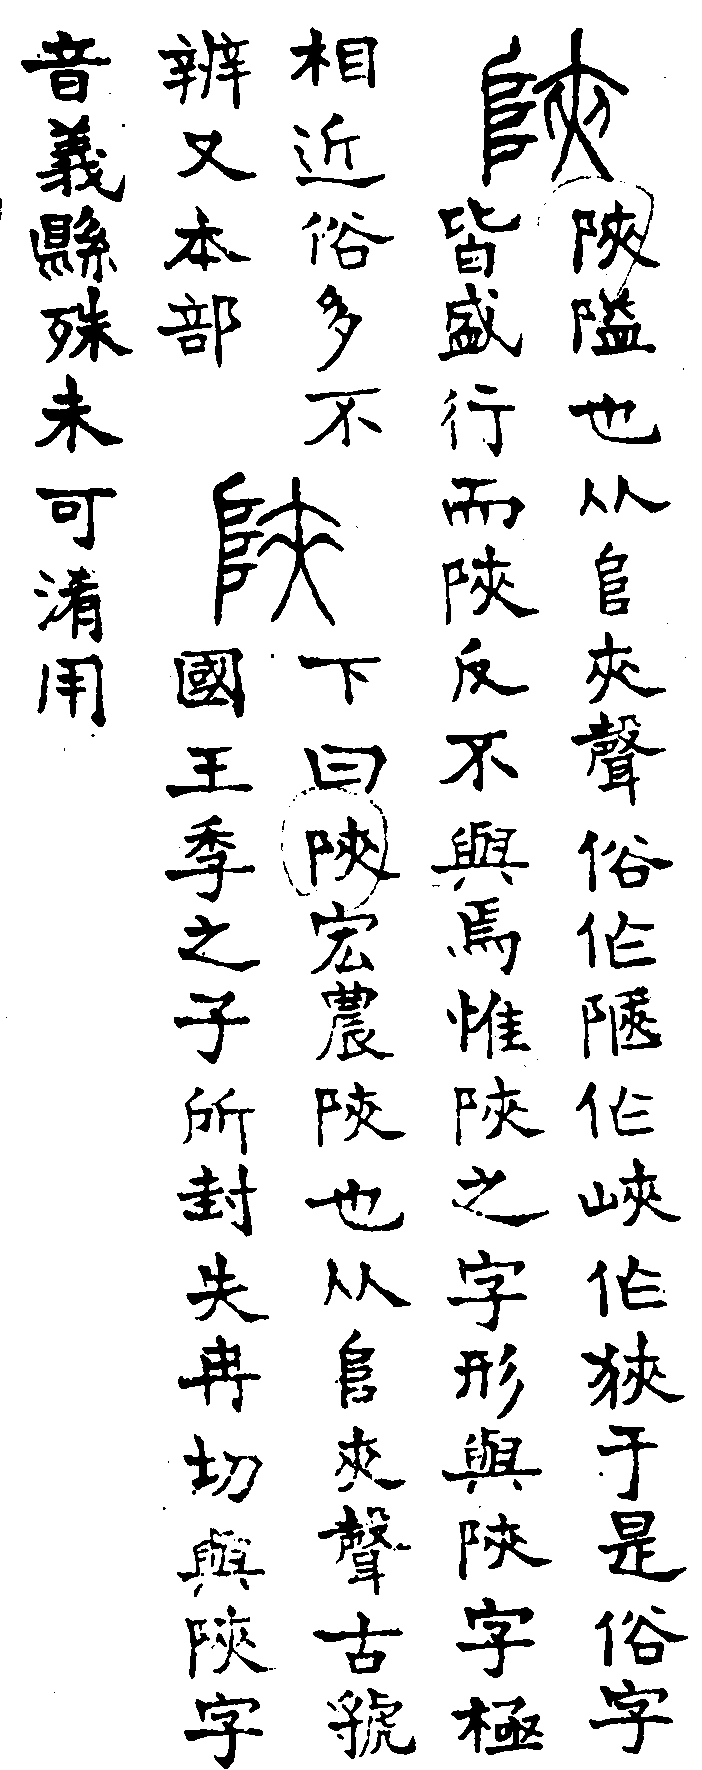 陜
陜隘也从𨸏夾聲俗作陿作峽作狹于是俗字
皆盛行而陜反不與焉惟陜之字形與陝字極
相近俗多不
辨又本部
陝
下曰陝宏農陝也从𨸏㚒聲古虢
國王季之子所封失冉切與陜字
音義縣殊未可淆用